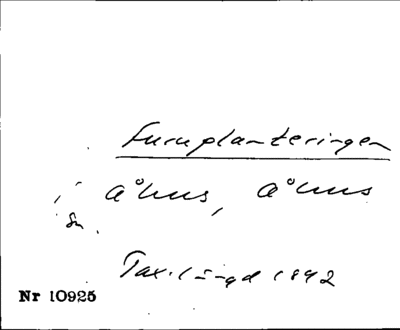 Furuplanteringen
i Åhus, Åhus
sn.
Tax.längd 1892
Nr 10925